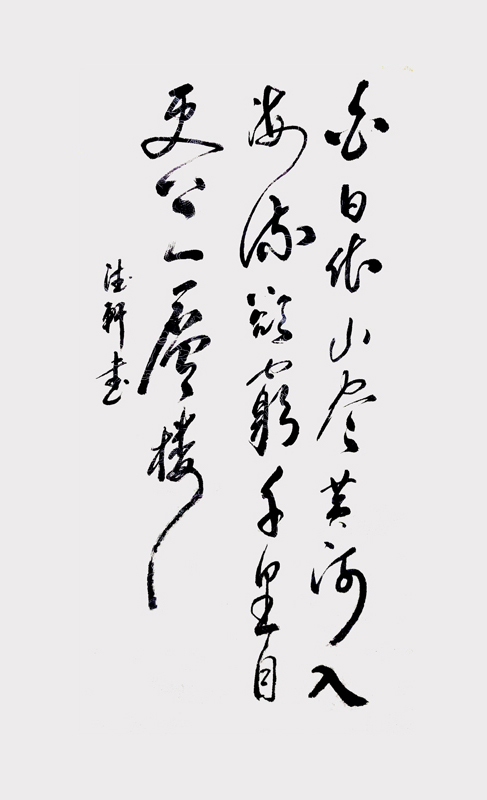 白日依山尽黄河入
海流欲窮千里目
更上一層楼
軒書